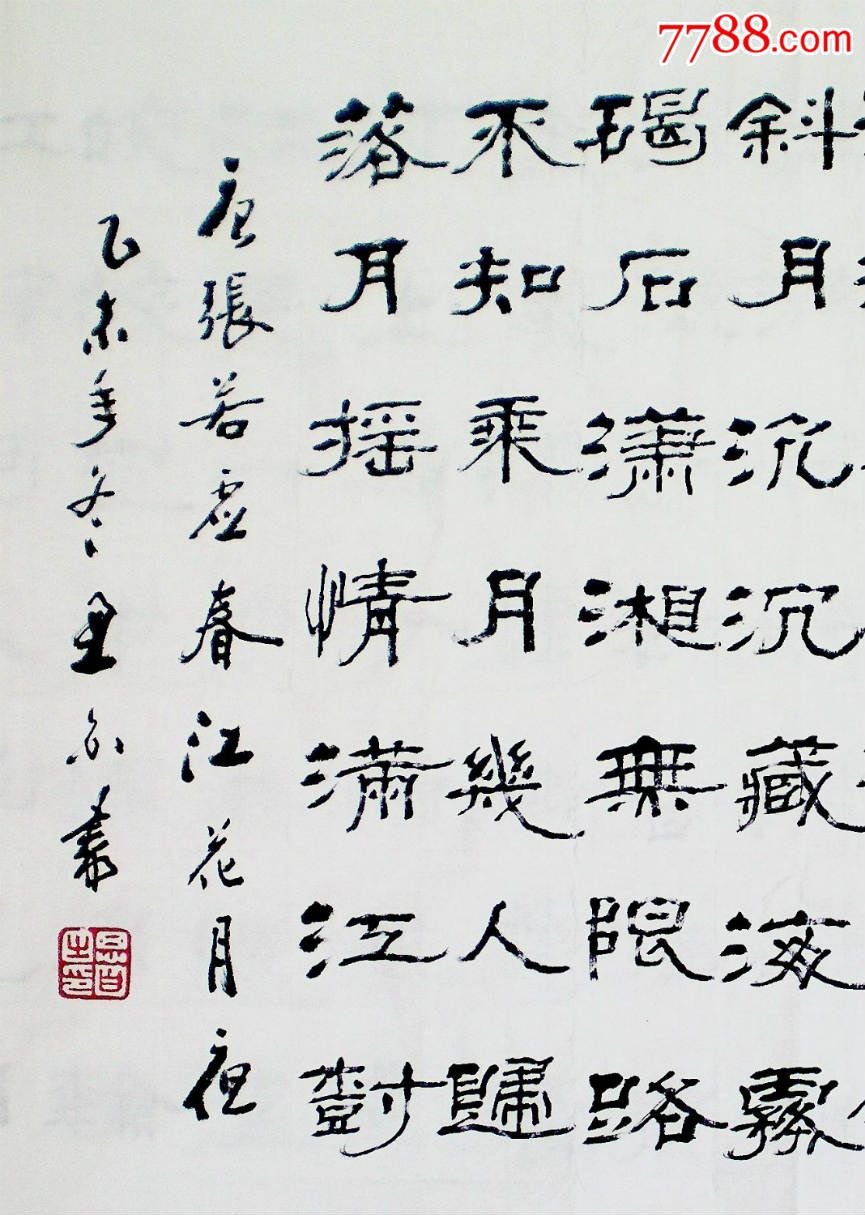 7788.com
斜月沉沉藏海霧
碣石瀟湘無限路
不知乘月幾人歸
落月摇情滿江樹
唐張若虚春江花月夜
乙未年冬